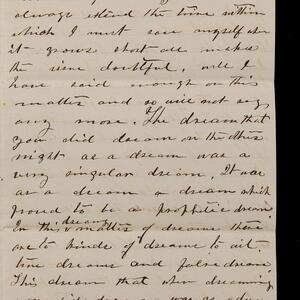 always extend the time within
which I must save myself when
it grows short all makes
the issue doubtful. will I
have said enough on this
matter and so will not say
any more. The dream that
you did dream on the other
night as a dream was a
very singular dream. It was
as a dream a dream which
proved to be a prophetic dream
In the dreamy matter of dreams there
are to kinds of dreams to wit
true dreams and false dreams
This dream that when dreaming